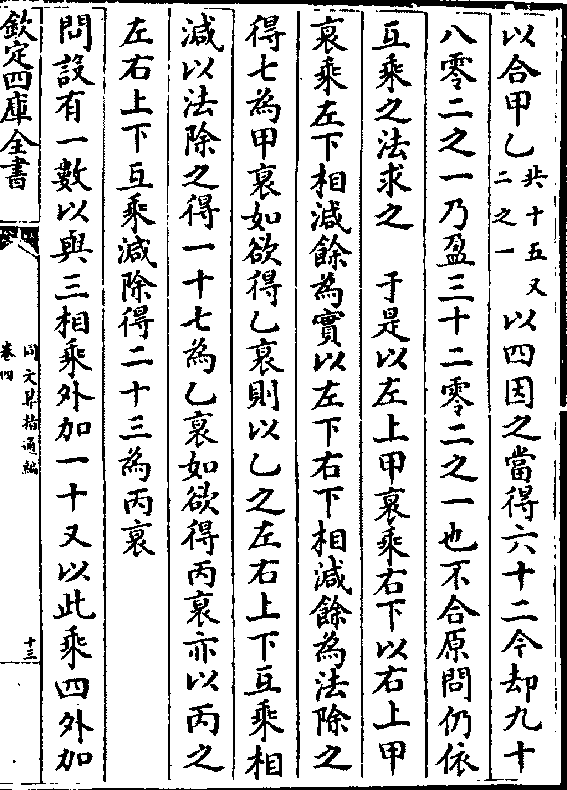 以合甲乙共十五又二之一以四因之當得六十二今却九十
八零二之一乃盈三十二零二之一也不合原問仍依
互乘之法求之　于是以左上甲衰乘右下以右上甲
衰乘左下相減餘為實以左下右下相減餘為法除之
得七為甲衰如欲得乙衰則以乙之左右上下互乘相
減以法除之得一十七為乙衰如欲得丙衰亦以丙之
左右上下互乘減除得二十三為丙衰
問設有一數以與三相乘外加一十又以此乘四外加
欽定四庫全書
同文算指通編
卷四
十三